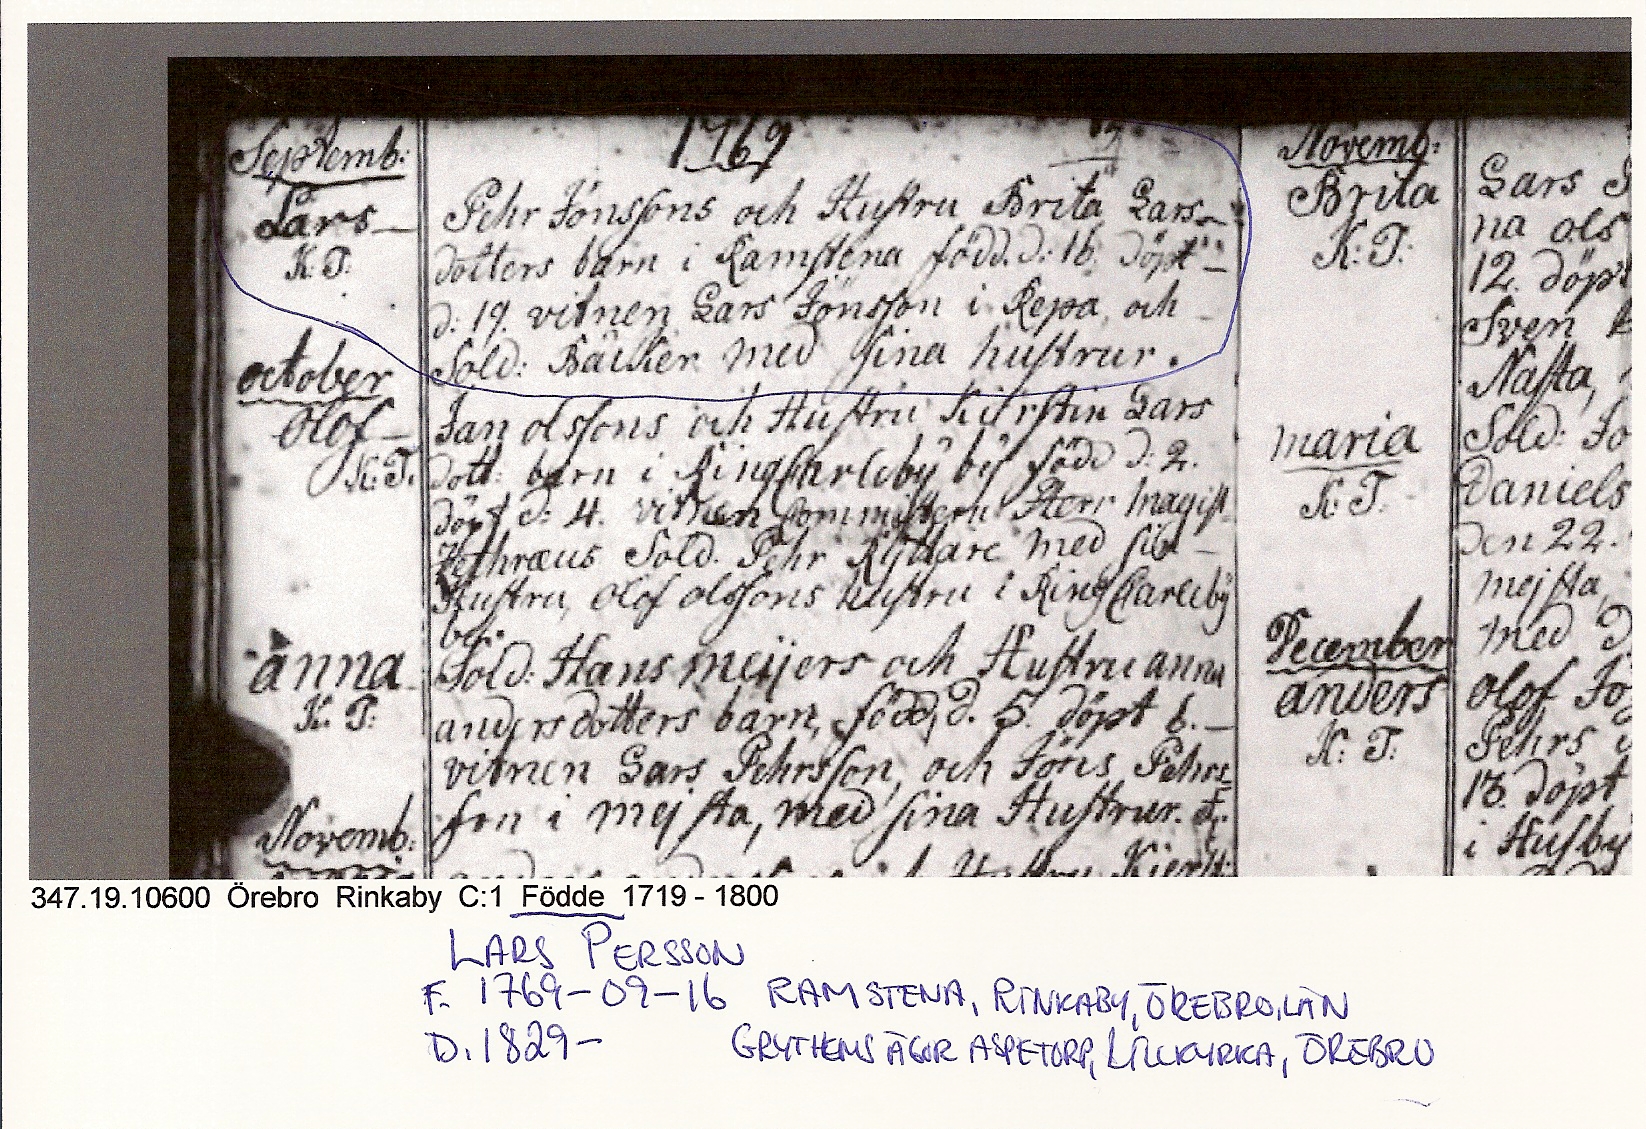 1769
Septemb:
Lars
K. T.
Pehr Jönssons och Hustru Brita Lars
dotters barn i Ramstena född. d: 16. döpt
d: 19. vitnen Lars Jönsson i Repa, och
Sold: Bäcker med sina hustrur.
october
Olof
K: T.
Jan olssons och Hustru Kierstin Lars
dott: barn i RingCarleby by född d: 2.
döpt d: 4. vitnen Herr Magist.
Sold. Pehr Ryttare med sin
Hustru, Olof olssons hustru i RingCarleby
by.
anna
K. T:
Sold: Hans meijers och Hustru anna
andersdotters barn, född, d. 5. döpt 6.
vitnen Lars Pehrsson, och Jöns Pehrs
son i mejsta, med sina Hustrur.
Novemb:
Hustru Kierst:
Novemb:
Brita
K: T:
Lars
na ols
12. döpt
Sven
Nafta,
maria
K: T.
Sold: Jo
Daniels
den 22.
mejsta,
med
December
anders
K: T.
Olof Jo
Pehrs
13. döpt
i Husby
347.19.10600 Örebro Rinkaby C:1 Födde 1719 - 1800
LARS PERSSON
F. 1769-09-16 RAMSTENA, RINKABY, ÖREBRO LÄN
D. 1829- GRYTHEMS ÄGOR ASPETORP, LILLKYRKA, ÖREBRO